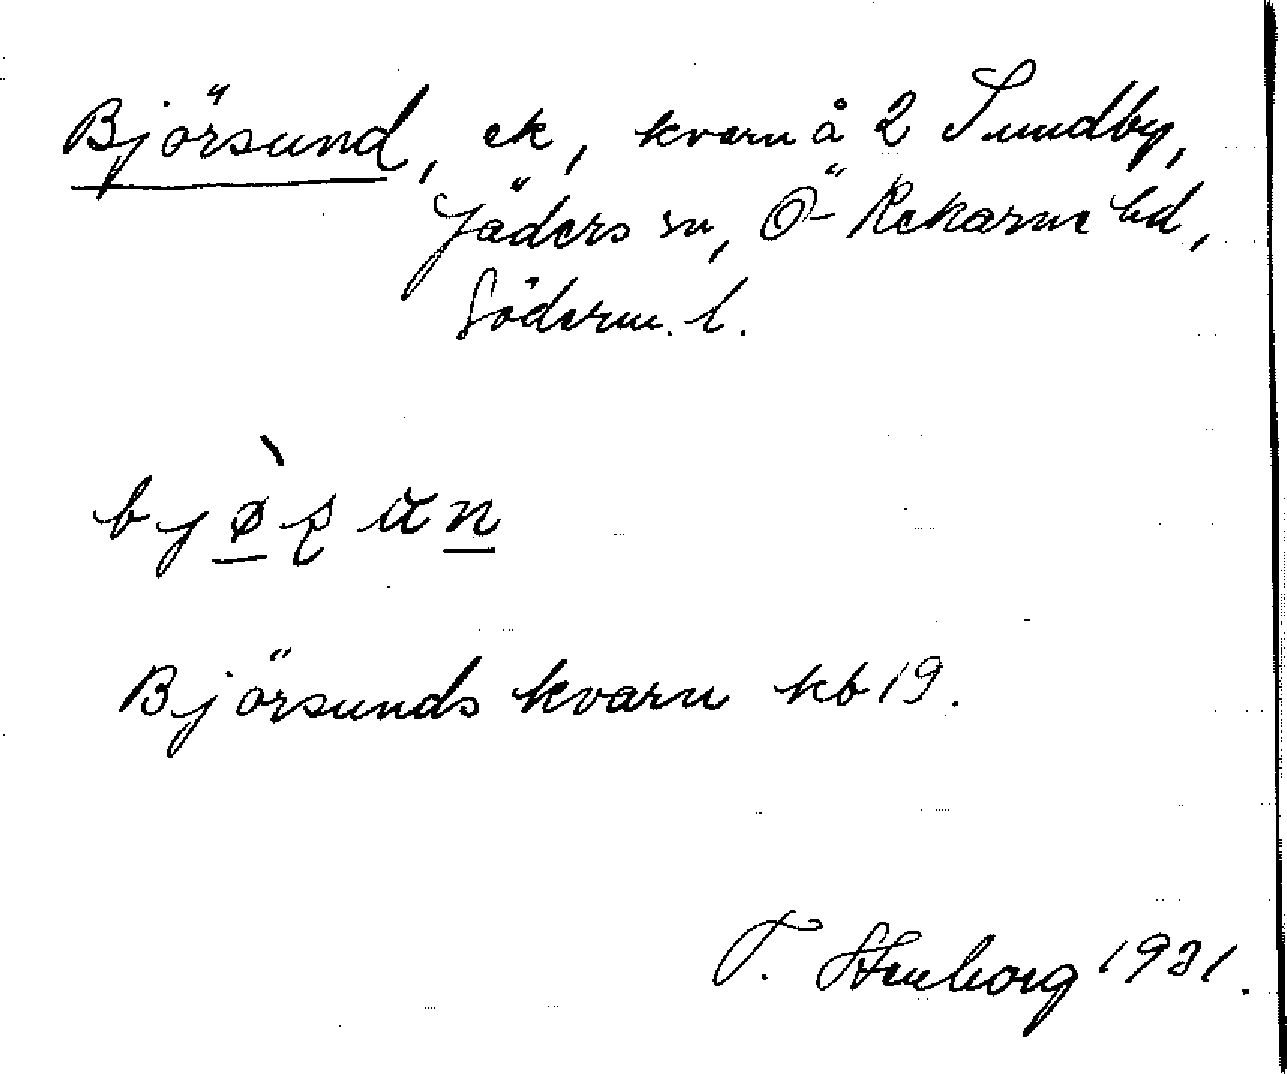 Björsund, ek, kvarn å 2 Sundby,
Jäders sn, Ö-Rekarne hd,
Söderm. l.
Björsunds kvarn kb 19.
T. Stenborg 1931.